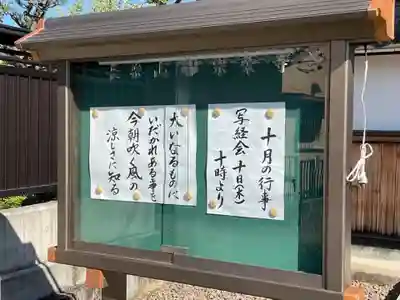 十月の行事
写経会 十日(木)
十時より
大いなるものに
いだかれある事を
今朝吹く風の
涼しさに知る